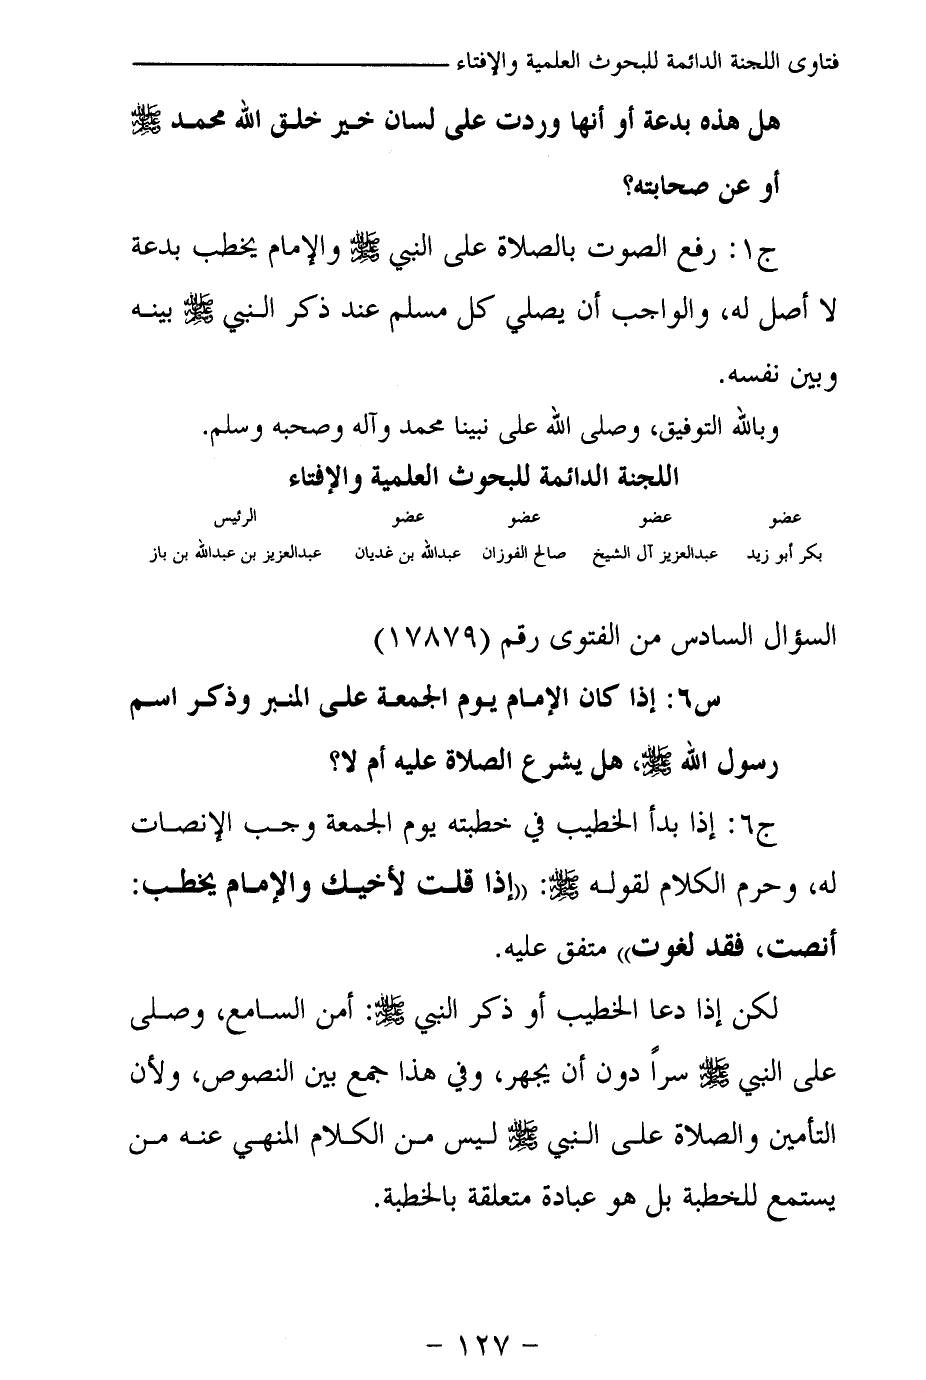 فتاوى اللجنة الدائمة للبحوث العلمية والإفتاء
هل هذه بدعة أو أنها وردت على لسان خير خلق الله محمد ﷺ
أو عن صحابته؟
ج١: رفع الصوت بالصلاة على النبي ﷺ والإمام يخطب بدعة
لا أصل له، والواجب أن يصلي كل مسلم عند ذكر النبي ﷺ بينه
وبين نفسه.
وبالله التوفيق، وصلى الله على نبينا محمد وآله وصحبه وسلم.
اللجنة الدائمة للبحوث العلمية والإفتاء
عضو عضو عضو عضو الرئيس
بكر أبو زيد عبدالعزيز آل الشيخ صالح الفوزان عبدالله بن غديان عبدالعزيز بن عبدالله بن باز
السؤال السادس من الفتوى رقم (١٧٨٧٩)
س٦: إذا كان الإمام يوم الجمعة على المنبر وذكر اسم
رسول الله ﷺ، هل يشرع الصلاة عليه أم لا؟
ج٦: إذا بدأ الخطيب في خطبته يوم الجمعة وجب الإنصات
له، وحرم الكلام لقوله ﷺ: ((إذا قلت لأخيك والإمام يخطب:
أنصت، فقد لغوت)) متفق عليه.
لكن إذا دعا الخطيب أو ذكر النبي ﷺ: أمن السامع، وصلى
على النبي ﷺ سراً دون أن يجهر، وفي هذا جمع بين النصوص، ولأن
التأمين والصلاة على النبي ﷺ ليس من الكلام المنهي عنه من
يستمع للخطبة بل هو عبادة متعلقة بالخطبة.
- ١٢٧ -